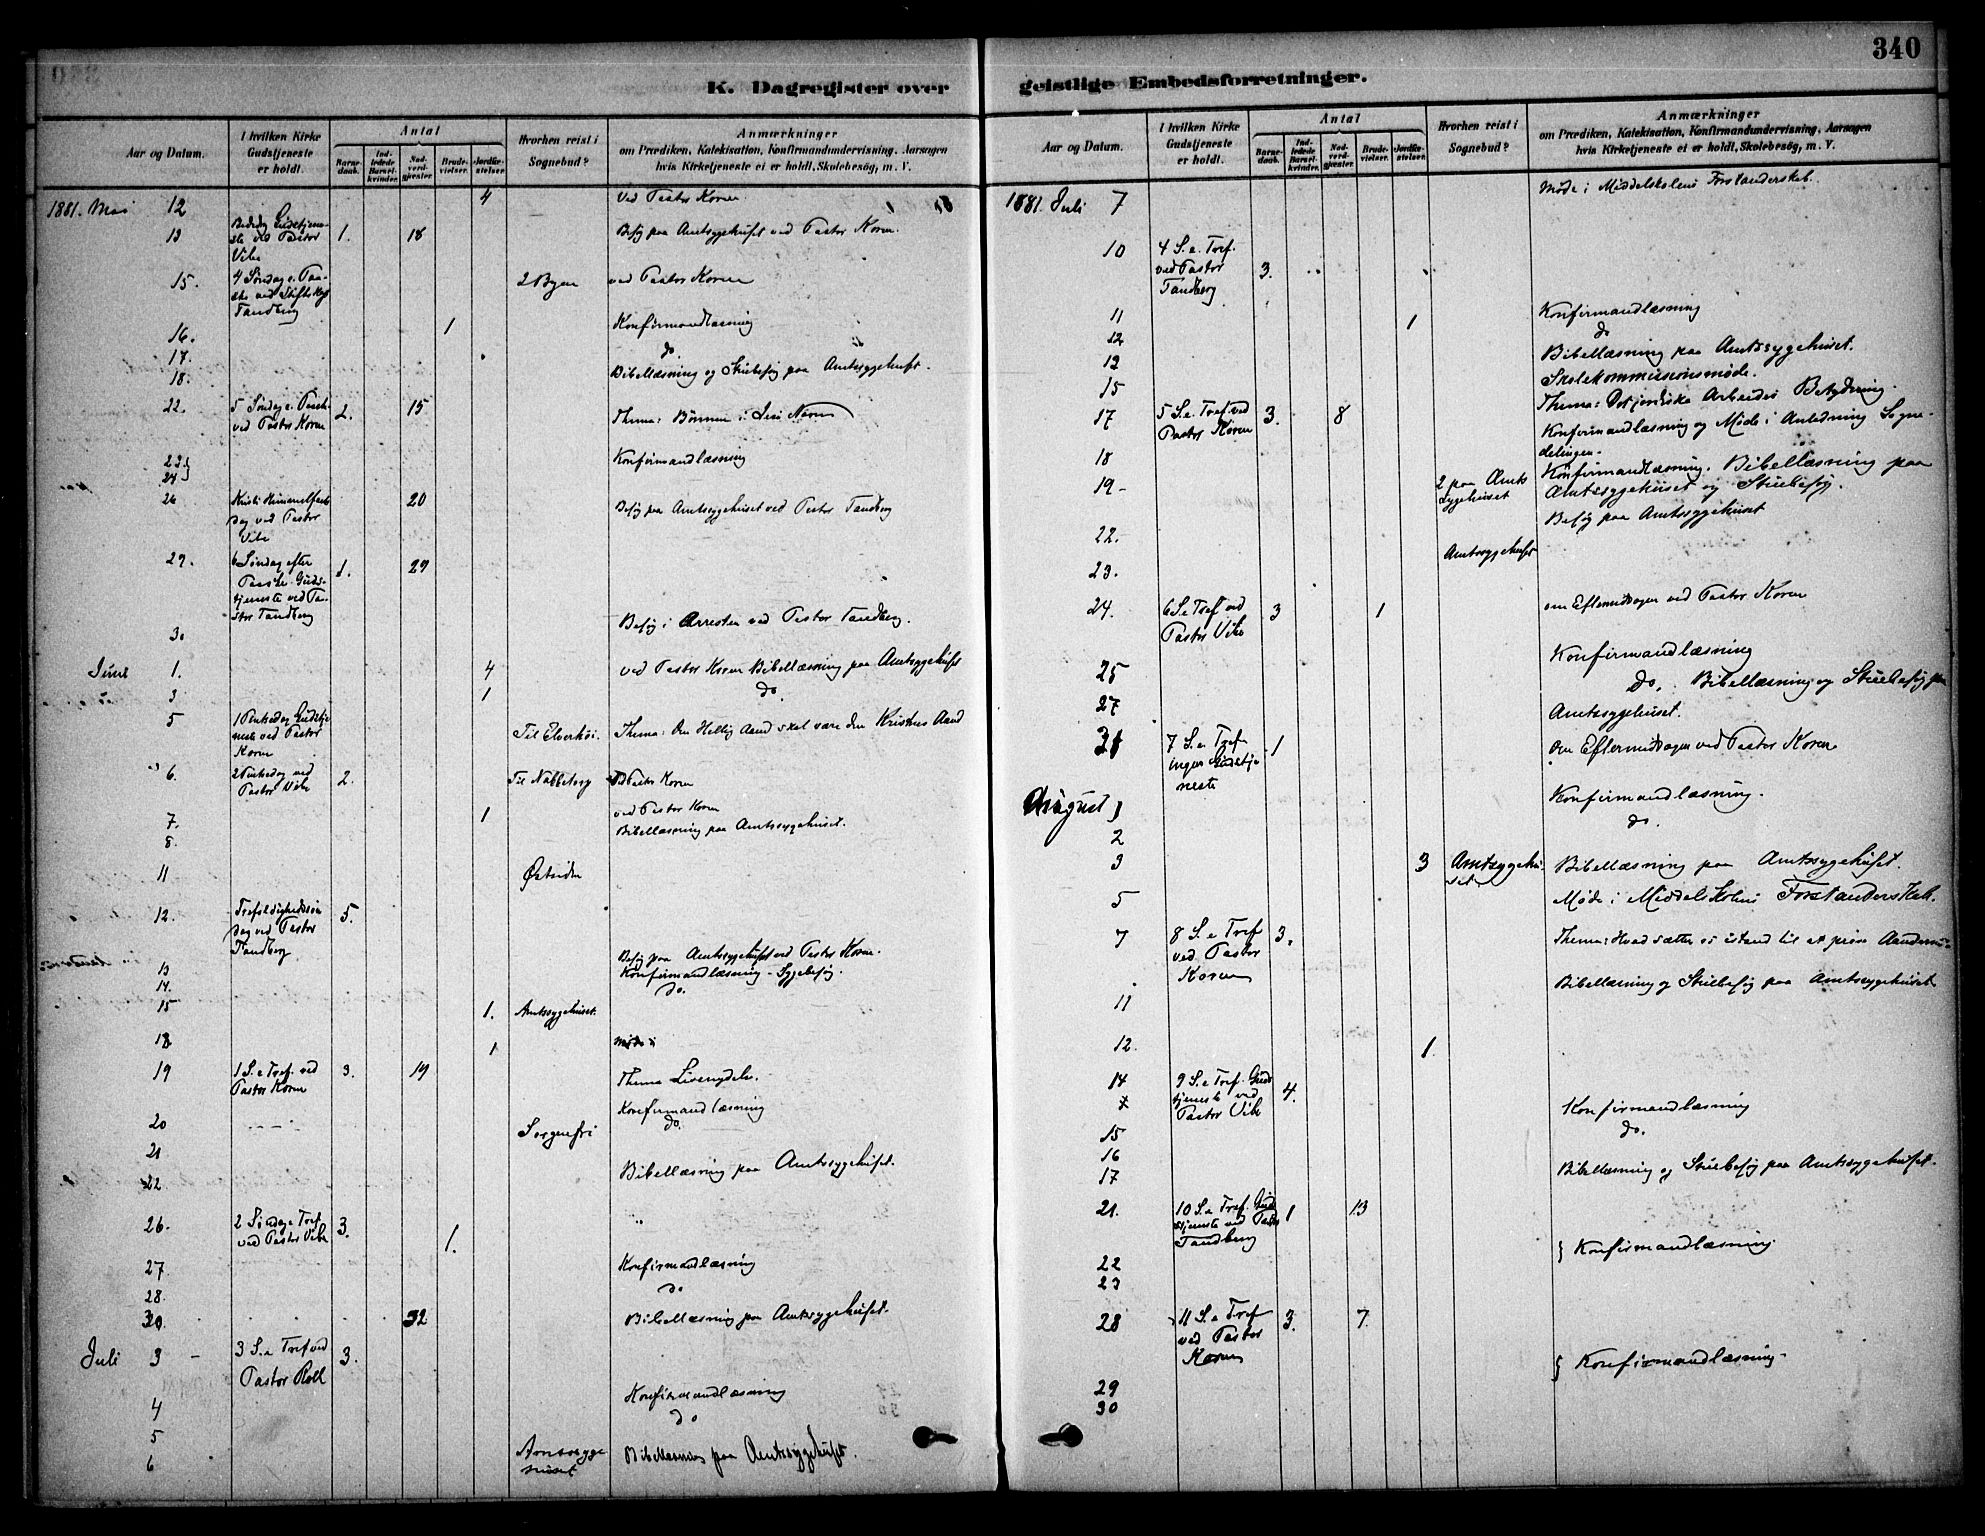 340
K. Dagregister over geistlige Embedsforretninger.
Aar og Datum.
I hvilken Kirke Gudstjeneste er holdt.
Antal
Barnedaab.
Indledede Barselkvinder.
Nadverdgjæster.
Brudevielser.
Jordfæstelser.
Hvorhen reist i Sognebud?
Anmærkninger
om Prædiken, Katekisation, Konfirmandundervisning, Aarsagen
hvis Kirketjeneste ei er holdt, Skolebesög, m. V.
1881. Mai 12 4 ved Pastor Koren
13 Bededag Gudstjeneste ved Pastor Vibe 1. 18 Besøg paa Amtssygehuset ved Pastor Koren.
15. 4 Søndag e. Paaske ved Stiftskap Tandberg 2 Byen ved Pastor Koren
16. 1 Konfirmandlæsning
17. do
18. Bibellæsning og Stuebesøg paa Amtssygehuset.
22. 5 Søndag e. Paask ved Pastor Koren 2. 15 Thema: Bønnen i Jesu Navn
23. Konfirmandlæsning
24
26 Kristi Himmelfarts Dag ved Pastor Vibe 20 Besøg paa Amtssygehuset ved Pastor Tandberg
29. 6 Søndag efter Paaske. Gudstjeneste ved Pastor Tandberg 1. 29
30 Besøg i Arresten ved Pastor Tandberg.
Juni 1. 4 ved Pastor Koren Bibellæsning paa Amtssygehuset
3 1 do.
5 1 Pintsedag Gudstjeneste ved Pastor Koren Til Elverhøi. Thema: Den Hellig Aand skal være den Kristnes Aand
6. 2 Pintsedag ved Pastor Vibe 2. Til Nabbetorp Pastor Koren
7. 1 ved Pastor Koren
8. Bibellæsning paa Amtssygehuset.
11 Østsiden
12. Trefoldighedssøndag ved Pastor Tandberg 5.
13 Besøg paa Amtssygehuset ved Pastor Koren.
14. Konfirmandlæsning - Sygebesøg.
15 1. Amtssygehuset. do.
18 1 Møde i
19 1 S. e Tref. ved Pastor Koren 3. 14 Thema
20 Konfirmandlæsning
21 Sorgenfri do.
22 Bibellæsning paa Amtssygehuset.
26. 2 Søndag e Tref ved Pastor Vibe 3. 1.
27. Konfirmandlæsning
28. do
30. 32 Bibellæsning paa Amtssygehuset.
Juli 3 3 S. e Tref ved Pastor Roll 3.
4 Konfirmandlæsning
5 do
6 Amtssygehuset Bibellæsning paa Amtssygehuset.
Aar og Datum.
I hvilken Kirke Gudstjeneste er holdt.
Antal
Barnedaab.
Indledede Barselkvinder.
Nadverdgjæster.
Brudevielser.
Jordfæstelser.
Hvorhen reist i Sognebud?
Anmærkninger
om Prædiken, Katekisation, Konfirmandundervisning, Aarsagen
hvis Kirketjeneste ei er holdt, Skolebesög, m. V.
1881. Juli 7 Møde i Middelskolens Forstanderskab.
10 4 S. e. Tref. ved Pastor Tandberg 3.
11 1 Konfirmandlæsning
12 do
12 Bibellæsning paa Amtssygehuset.
15 Skolekommissionsmøde.
17 5 S. e. Tref ved Pastor Koren 3. 8 Thema: Det jordiske Arbeides Betydning.
18 Konfirmandlæsning og Møde i Anledning Sognedelingen.
19 2 paa Amtssygehuset Konfirmandlæsning. Bibellæsning paa Amtssygehuset og Stuebesøg.
22. Besøg paa Amtssygehuset
23. Amtssygehuset
24. 6 S. e Tref ved Pastor Vibe 3 1 om Eftermiddagen ved Pastor Koren
25 Konfirmandlæsning
27 do. Bibellæsning og Stuebesøg paa Amtssygehuset.
31 7 S. e. Tref ingen Gudstjeneste 1 Om Eftermiddagen ved Pastor Koren
August 1 Konfirmandlæsning.
2 do.
3 3 Amtssygehuset Bibellæsning paa Amtssygehuset.
5 Møde i Middelskolens Forstanderskab.
7 8 S. e Tref ved Pastor Koren 3. Thema: Hvad sætter os istand til at prøve Aanderne
11 Bibellæsning og Stuebesøg paa Amtssygehuset
12. 1.
14 9 S. e Tref. Gudstjeneste ved Pastor Vibe 4.
15 Konfirmandlæsning
16 do.
17 Bibellæsning og Stuebesøg paa Amtssygehuset.
21. 10 S. e Tref. Gudstjeneste ved Pastor Tandberg 1 13
22 Konfirmandlæsning
23
28 11 S. e Tref ved Pastor Koren 3. 7.
29 Konfirmandlæsning
30